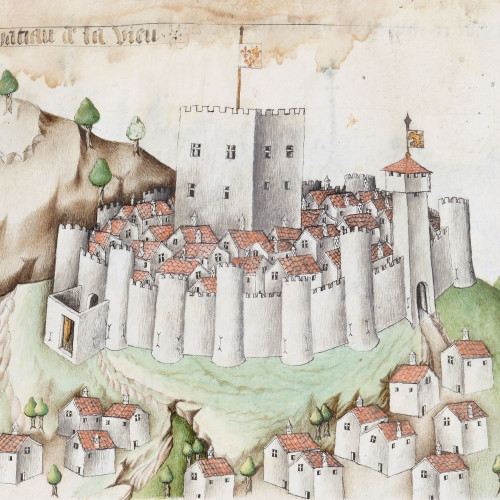 hatiau & la vieu